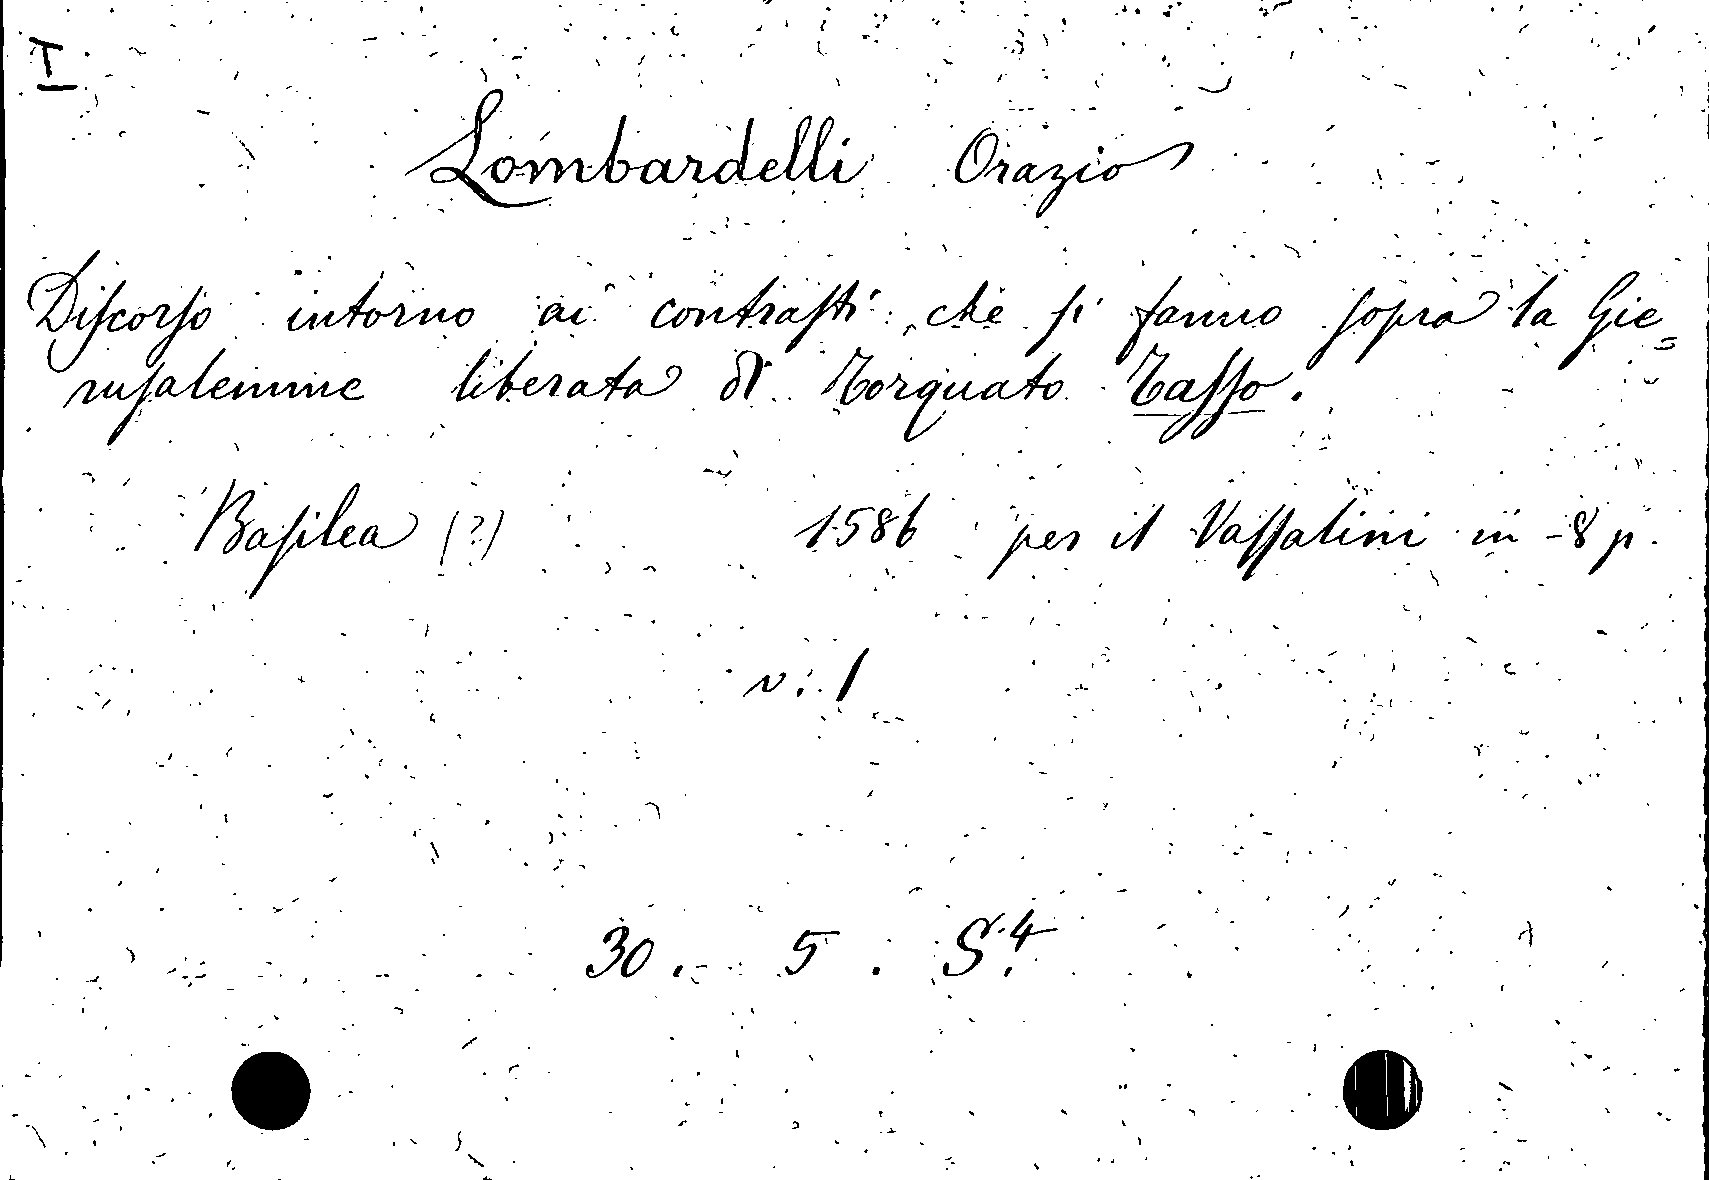 I
Lombardelli Orazio
Discorso intorno ai contrasti che si fanno sopra la Gie=
rusalemme liberata di Torquato Tasso.
Basilea (?) 1586 per il Vassalini in -8 p.
v. 1
30. 5. S.4